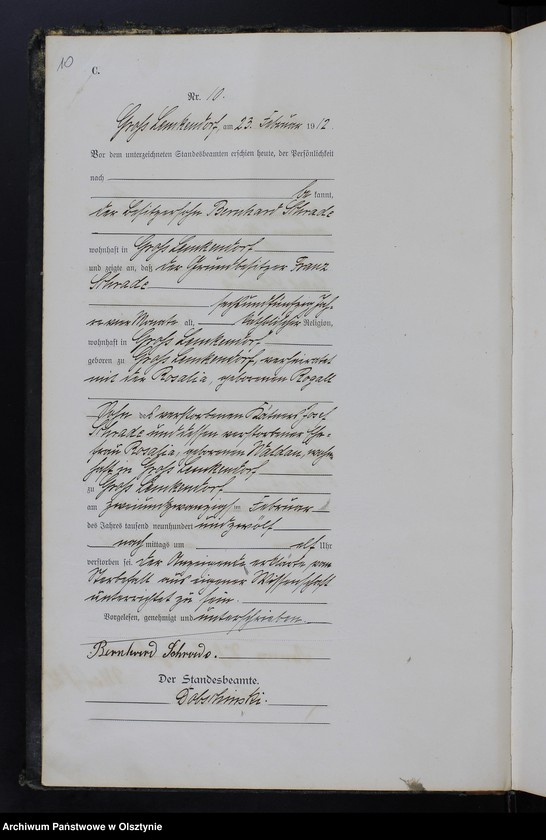 10
C.
Nr. 10.
Groß Lemkendorf, am 23. Februar 1912.
Vor dem unterzeichneten Standesbeamten erschien heute, der Persönlichkeit
nach
be kannt,
der Besitzersohn Bernhard Schrade
wohnhaft in Groß Lemkendorf
und zeigte an, daß der Grundbesitzer Franz
Schrade
sechsundfünfzig Jah-
re Monate alt, katholischer Religion,
wohnhaft in Groß Lemkendorf
geboren zu Groß Lemkendorf, verheiratet
mit der Rosalia, geborenen Rogall
Sohn des verstorbenen Kätners Josef
Schrade und dessen verstorbener Ehe-
frau Rosalia, geborenen Waldau, wohn-
haft in Groß Lemkendorf
zu Groß Lemkendorf
am zweiundzwanzigsten Februar
des Jahres tausend neunhundert und zwölf
nach mittags um elf Uhr
verstorben sei. Der Anzeigende erklärte, vom
Sterbefall aus eigener Wissenschaft
unterrichtet zu sein.
Vorgelesen, genehmigt und unterschrieben
Bernhard Schrade.
Der Standesbeamte.
Dobschinski.
Archiwum Państwowe w Olsztynie